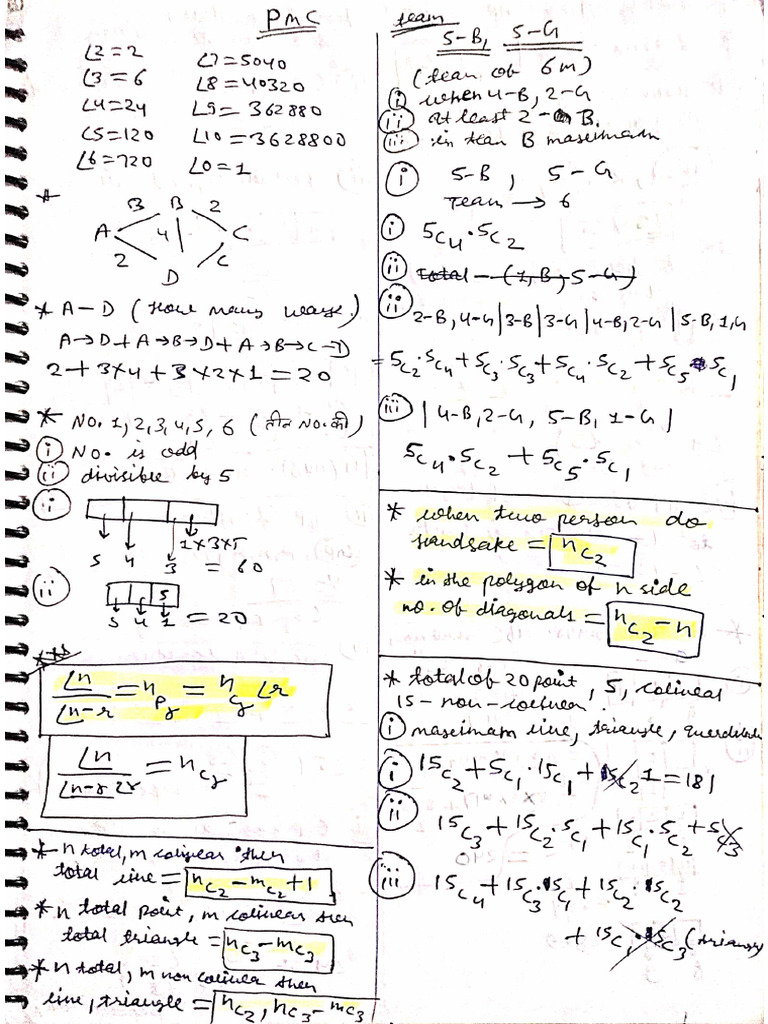 PnC
∠2=2 ∠7=5040
∠3=6 ∠8=40320
∠4=24 ∠9=362880
∠5=120 ∠10=3628800
∠6=720 ∠0=1
*
3 B 2
A 4 C
2 D C
* A-D (How many ways.)
A→D+A→B→D+A→B→C→D
2+3×4+3×2×1=20
* NO. 1,2,3,4,5,6 (तीन NO. की)
(i) NO. is odd
(ii) divisible by 5
(i)
5 4 3 1×3×5
= 60
(ii) 5
5 4 1 = 20
***
∠n / ∠n-r = nPr = nCr ∠r
∠n / ∠n-r ∠r = nCr
* n total, m colinear then
total line = nC2-mC2+1
* n total point, m colinear then
total triangle = nC3-mC3
* n total, m non colinear then
line, triangle = nC2, nC3-mC3
team
5-B, 5-G
(team of 6m)
(i) when 4-B, 2-G
(ii) at least 2-B.
(iii) in team B maximam
(i) 5-B, 5-G
Team → 6
(i) 5C4·5C2
(ii) Total-(1,B,5-G)
(ii) 2-B,4-G|3-B|3-G|4-B,2-G|5-B,1,G
=5C2·5C4+5C3·5C3+5C4·5C2+5C5·5C1
(iii) |4-B,2-G, 5-B,1-G|
5C4·5C2+5C5·5C1
* when two person do
handsake = nC2
* in the polygon of n side
no. of diagonals = nC2-n
* total of 20 point, 5, colinear
15-non-colinear.
(i) maximam line, triangle,
(i) 15C2+5C1·15C1+1=181
(ii) 15C3+15C2·5C1+15C1·5C2+5C3
(iii) 15C4+15C3·5C1+15C2·15C2
+15C1·15C3 (triangle)